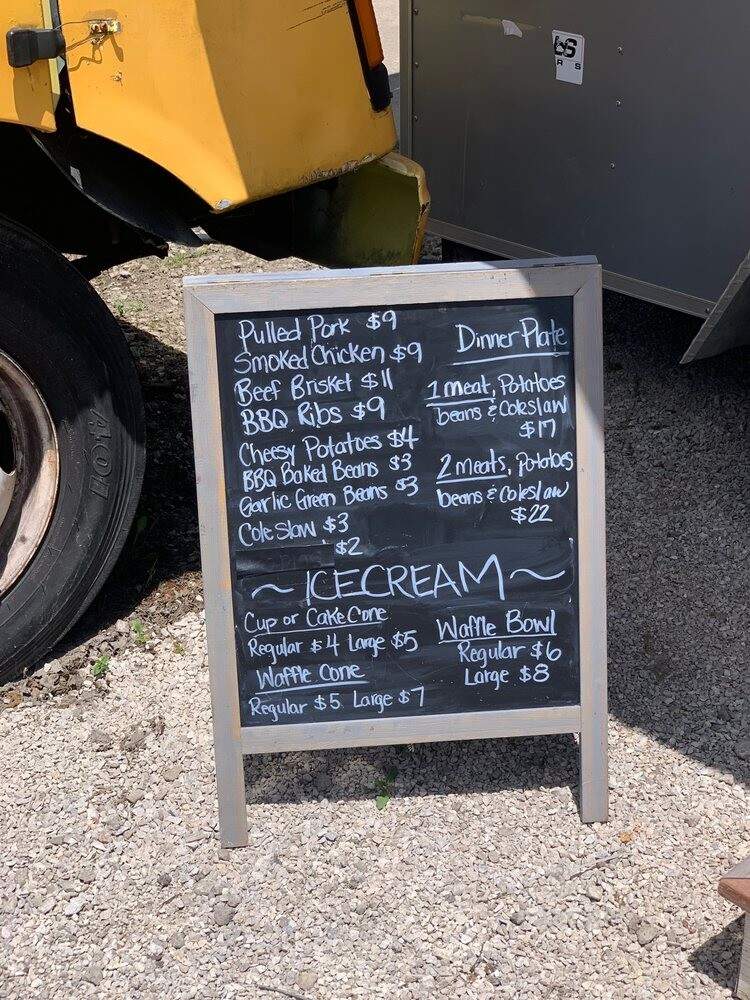 Pulled Pork $9
Smoked Chicken $9
Beef Brisket $11
BBQ Ribs $9
Cheesy Potatoes $4
BBQ Baked Beans $3
Garlic Green Beans $3
Cole Slaw $3
$2
Dinner Plate
1 meat, Potatoes
beans & Coleslaw
$17
2 meats, Potatoes
beans & Coleslaw
$22
~ ICECREAM ~
Cup or Cake Cone
Regular $4 Large $5
Waffle Cone
Regular $5 Large $7
Waffle Bowl
Regular $6
Large $8